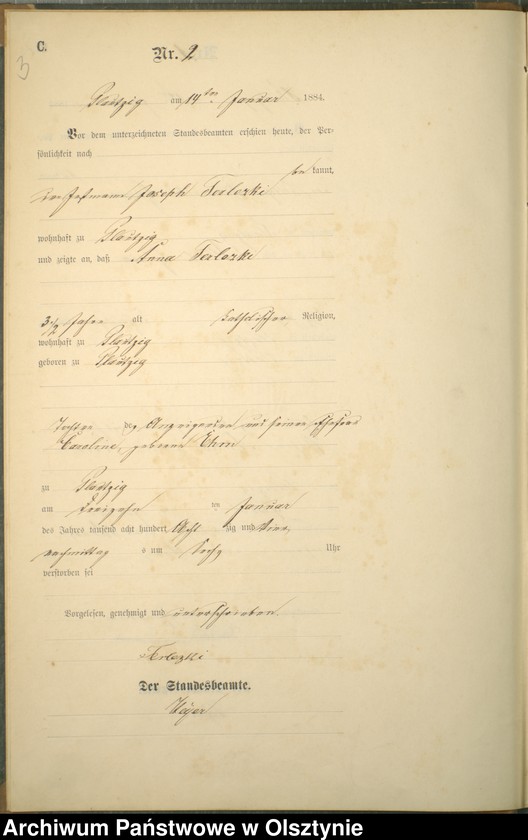 C.
3
Nr. 2
am 14ten Januar 1884.
Vor dem unterzeichneten Standesbeamten erschien heute, der Per-
sönlichkeit nach
be kannt,
Joseph
wohnhaft zu
und zeigte an, daß Anna
3 1/2 Jahre alt katholischer Religion,
wohnhaft zu
geboren zu
Tochter des Anzeigenden und seiner Ehefrau
Caroline, geborne
zu
am dreizehn ten Januar
des Jahres tausend acht hundert Acht zig und vier,
nachmittag s um sechs Uhr
verstorben sei
Vorgelesen, genehmigt und unterschrieben.
Der Standesbeamte.
Archiwum Państwowe w Olsztynie